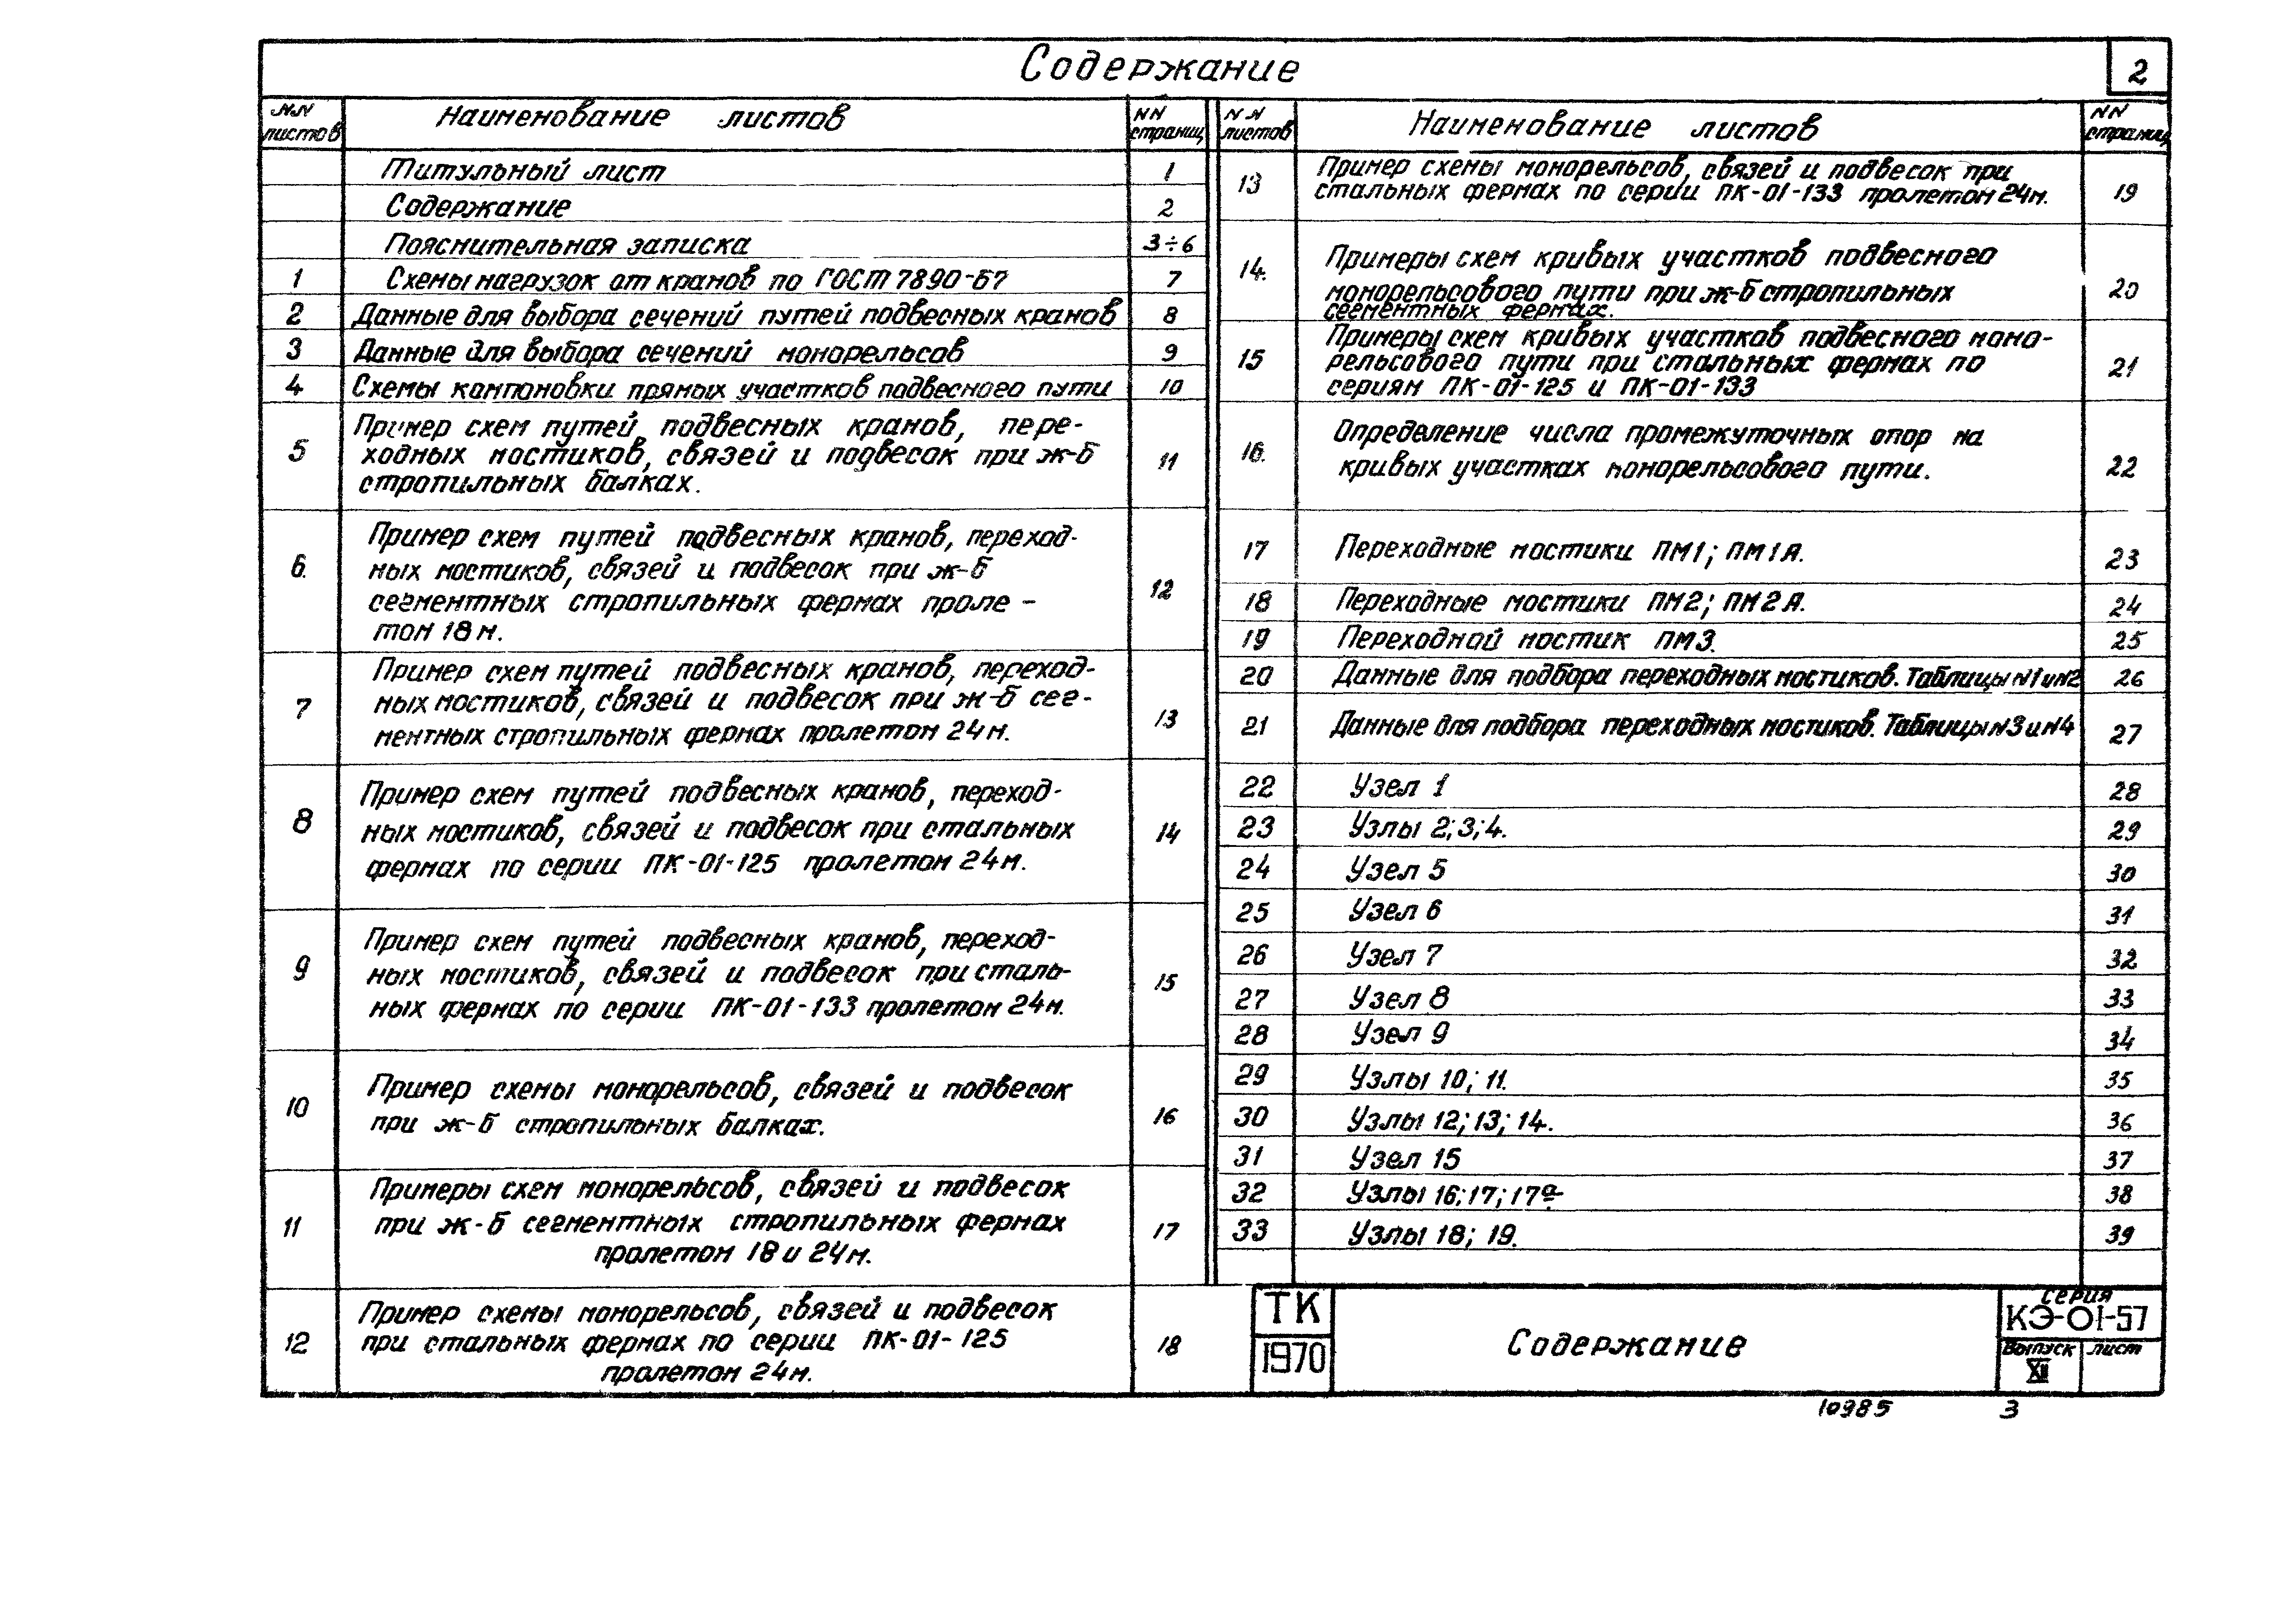 Содержание
2
NN листов
Наименование листов
NN страниц
Титульный лист 1
Содержание 2
Пояснительная записка 3÷6
1 Схемы нагрузок от кранов по ГОСТ 7890-67 7
2 Данные для выбора сечений путей подвесных кранов 8
3 Данные для выбора сечений монорельсов 9
4 Схемы компоновки прямых участков подвесного пути 10
5 Пример схем путей подвесных кранов, пере-
ходных мостиков, связей и подвесок при ж-б 11
стропильных балках.
6. Пример схем путей подвесных кранов, переход-
ных мостиков, связей и подвесок при ж-б
сегментных стропильных фермах проле- 12
том 18 м.
7 Пример схем путей подвесных кранов, переход-
ных мостиков, связей и подвесок при ж-б сег- 13
ментных стропильных фермах пролетом 24 м.
8 Пример схем путей подвесных кранов, переход-
ных мостиков, связей и подвесок при стальных 14
фермах по серии ПК-01-125 пролетом 24 м.
9 Пример схем путей подвесных кранов, переход-
ных мостиков, связей и подвесок при сталь- 15
ных фермах по серии ПК-01-133 пролетом 24 м.
10 Пример схемы монорельсов, связей и подвесок
при ж-б стропильных балках. 16
11 Примеры схем монорельсов, связей и подвесок
при ж-б сегментных стропильных фермах 17
пролетом 18 и 24 м.
12 Пример схемы монорельсов, связей и подвесок
при стальных фермах по серии ПК-01-125 18
пролетом 24 м.
NN листов
Наименование листов
NN страниц
13 Пример схемы монорельсов, связей и подвесок при
стальных фермах по серии ПК-01-133 пролетом 24м. 19
14. Примеры схем кривых участков подвесного
монорельсового пути при ж-б стропильных 20
сегментных фермах.
15 Примеры схем кривых участков подвесного моно-
рельсового пути при стальных фермах по 21
сериям ПК-01-125 и ПК-01-133
16. Определение числа промежуточных опор на
кривых участках монорельсового пути. 22
17 Переходные мостики ПМ1; ПМ1А. 23
18 Переходные мостики ПМ2; ПМ2А. 24
19 Переходной мостик ПМ3. 25
20 Данные для подбора переходных мостиков. Таблицы N1 и N2 26
21 Данные для подбора переходных мостиков. Таблицы N3 и N4 27
22 Узел 1 28
23 Узлы 2; 3; 4. 29
24 Узел 5 30
25 Узел 6 31
26 Узел 7 32
27 Узел 8 33
28 Узел 9 34
29 Узлы 10; 11. 35
30 Узлы 12; 13; 14. 36
31 Узел 15 37
32 Узлы 16; 17; 17а. 38
33 Узлы 18; 19. 39
ТК
1970
Содержание
серия
КЭ-01-57
Выпуск лист
XII
10985 3